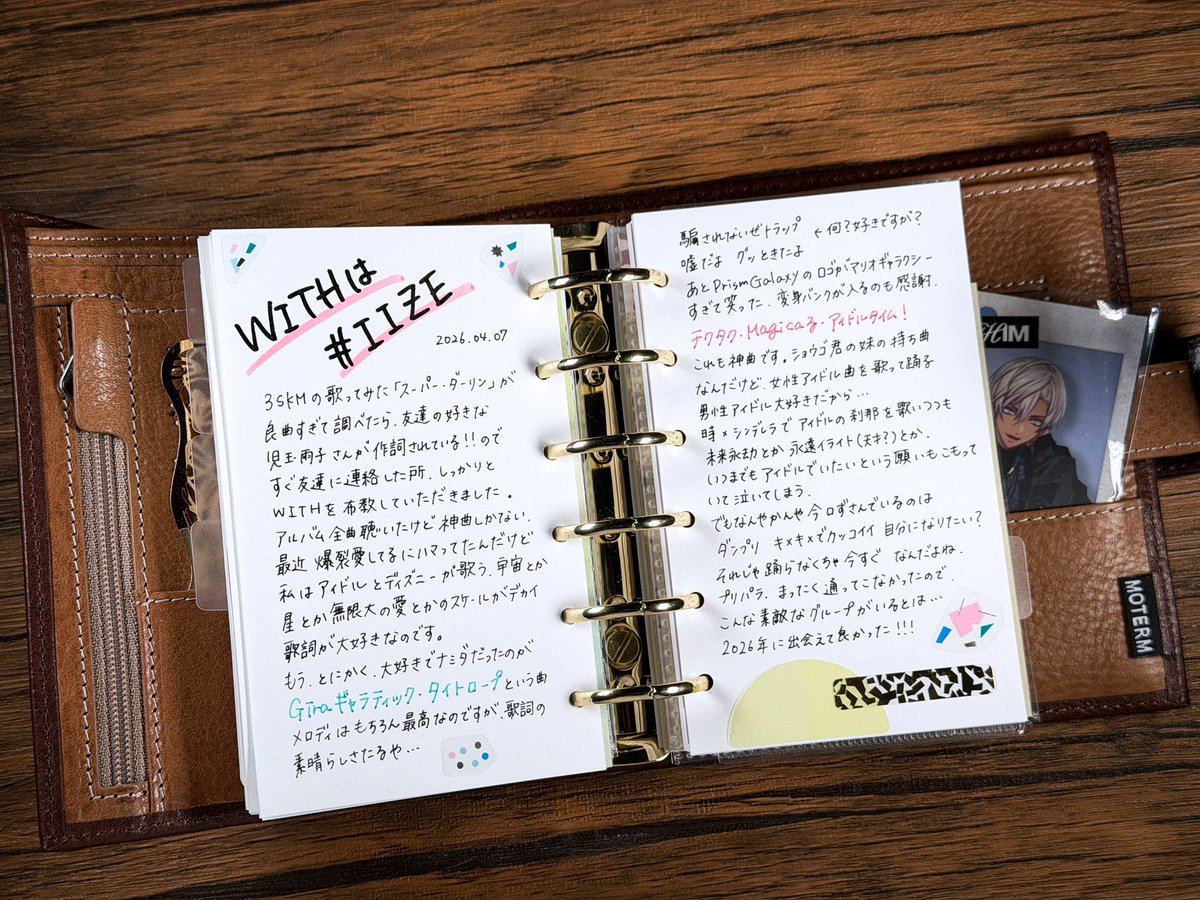 WITHは
#IIZE
2026.04.07
3SKMの歌ってみた「スーパー・ダーリン」が
良曲すぎて調べたら、友達の好きな
児玉雨子さんが作詞されている!!ので
すぐ友達に連絡した所、しっかりと
WITHを布教していただきました。
アルバム全曲聴いたけど神曲しかない.
最近爆裂愛してるにハマってたんだけど
私はアイドルとディズニーが歌う、宇宙とか
星とか無限大の愛とかのスケールがデカイ
歌詞が大好きなのです。
もう、とにかく、大好きでナミダだったのが
Giraギャラティック・タイトロープという曲
メロディはもちろん最高なのですが、歌詞の
素晴らしさたるや…
騙されないぜトラップ ←何?好きですが?
嘘だよ グッときたよ
あとPrism Galaxyのロゴがマリオギャラクシー
すぎて笑った.変身バンクが入るのも感謝.
テクタク・Magicaる・アイドルタイム!
これも神曲です。ショウゴ君の妹の持ち曲
なんだけど、女性アイドル曲を歌って踊る
男性アイドル大好きだから…
時×シンデレラでアイドルの刹那を歌いつつも
未来永劫とか永遠イライト(天才?)とか.
いつまでもアイドルでいたいという願いもこもって
いて泣いてしまう.
でもなんやかんや今口ずさんでいるのは
ダンプリ キメキメでカッコイイ自分になりたい?
それじゃ踊らなくちゃ今すぐ なんだよね.
プリパラ、まったく通ってこなかったので、
こんな素敵なグループがいるとは…
2026年に出会えて良かった!!!
HIM
MOTERM